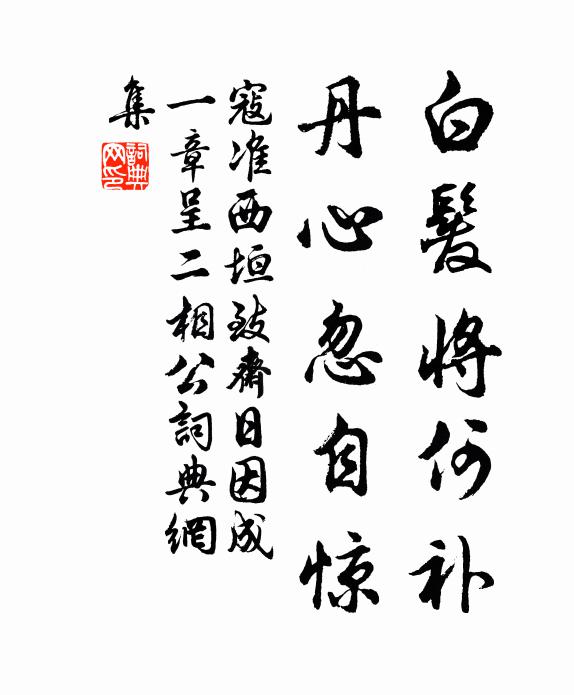 白髮將何补
丹心忽自惊
寇准西垣致齋日因成
一章呈二相公詞典網
集
詞典
网印